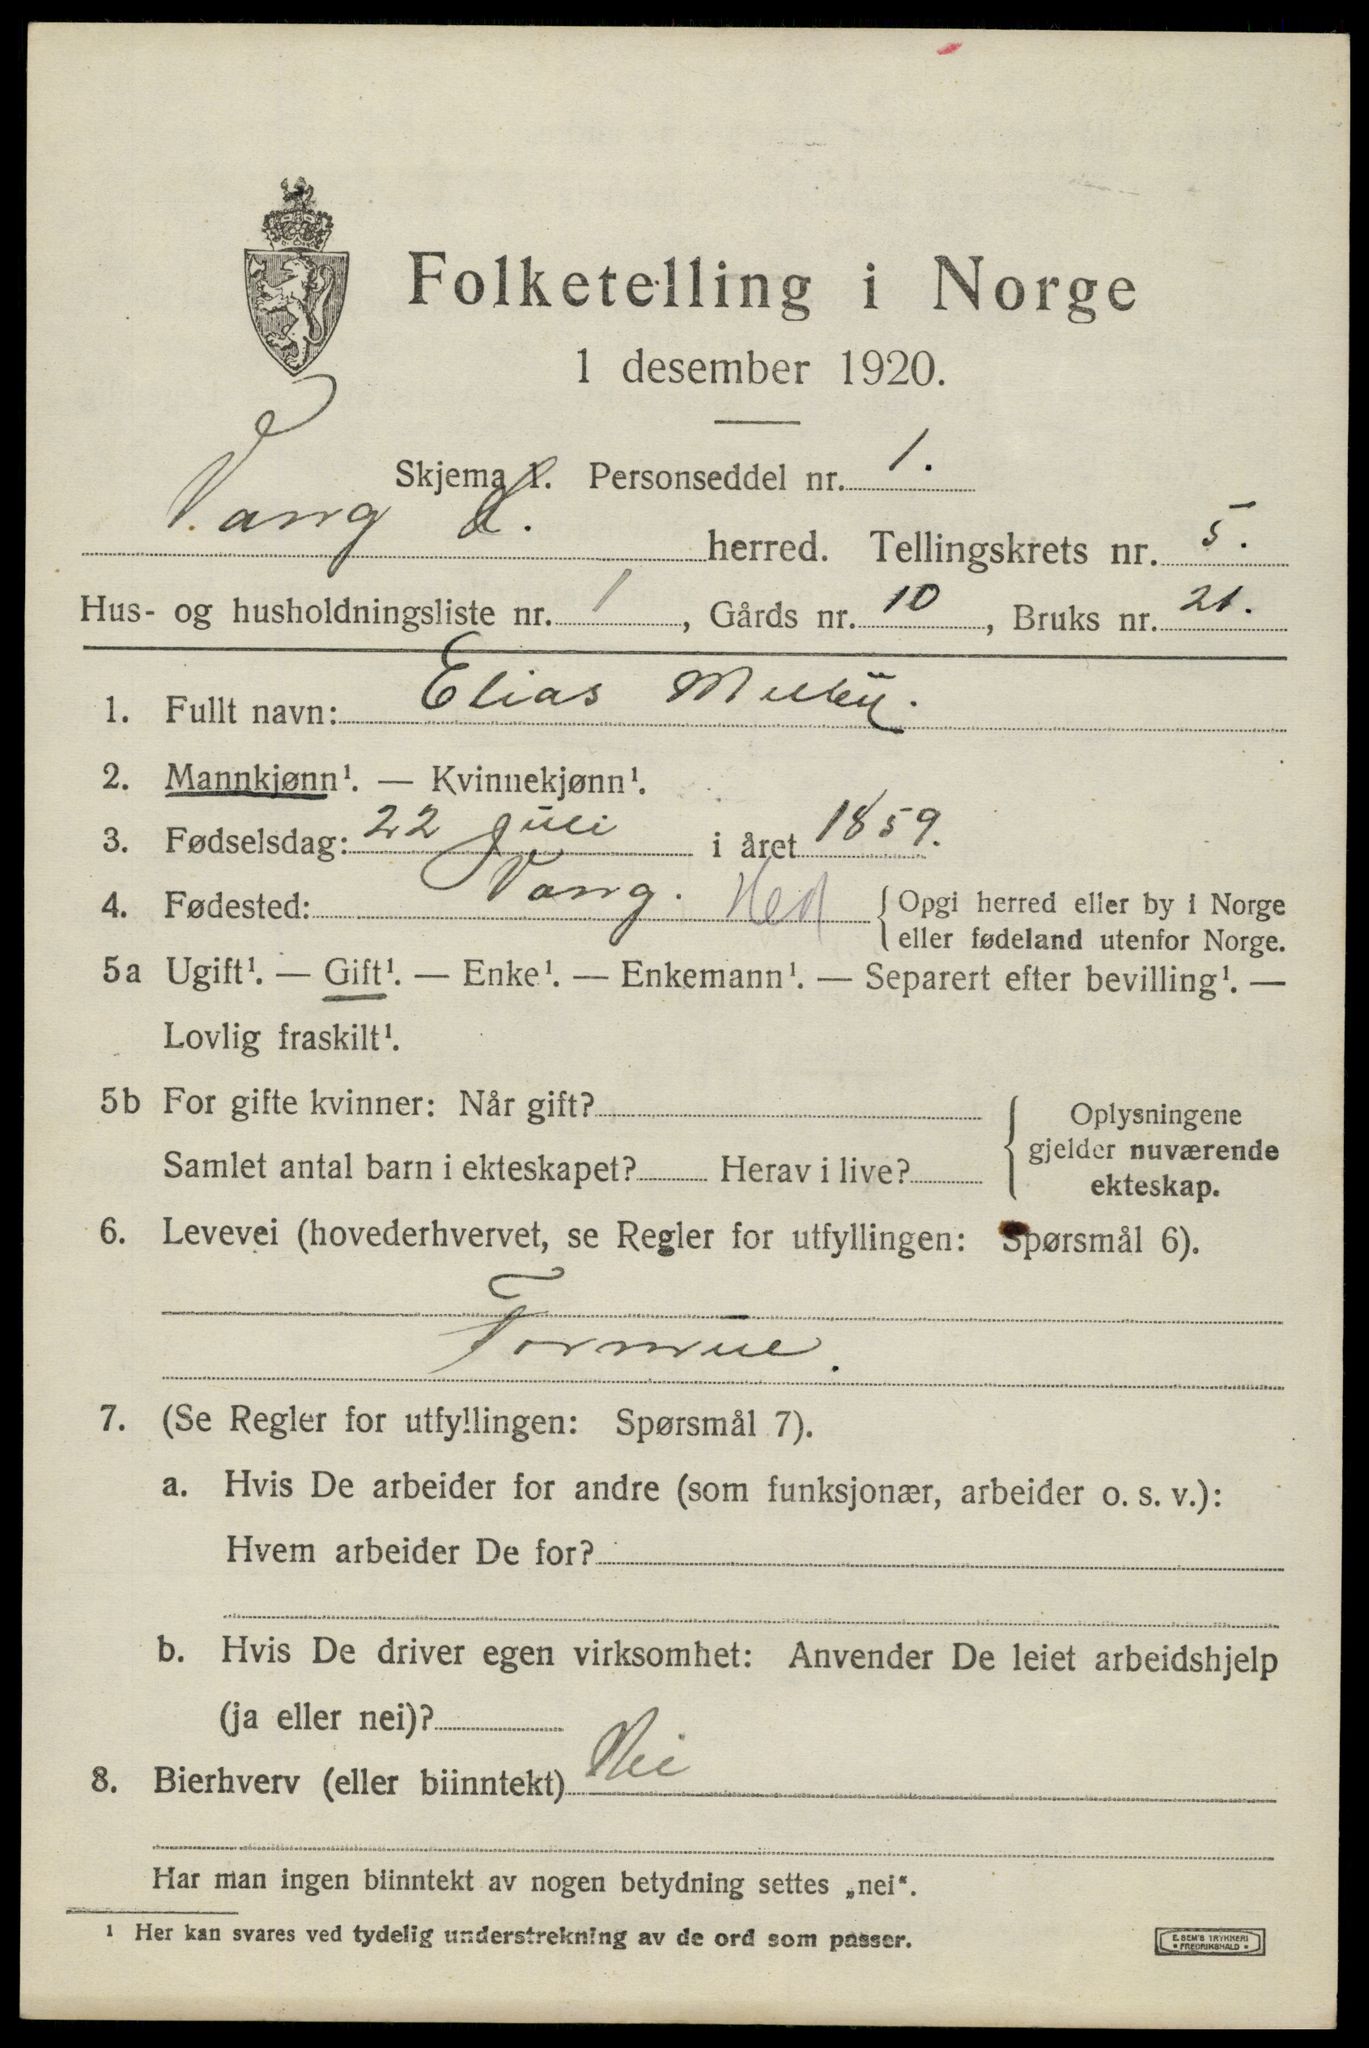 Folketelling i Norge
1 desember 1920.
Skjema 1. Personseddel nr. 1.
Vang H. herred. Tellingskrets nr. 5.
Hus- og husholdningsliste nr. 1, Gårds nr. 10, Bruks nr. 21.
1. Fullt navn: Elias
2. Mannkjønn¹. — Kvinnekjønn¹.
3. Fødselsdag: 22 juli i året 1859.
4. Fødested: Vang. Hed { Opgi herred eller by i Norge
eller fødeland utenfor Norge.
5a Ugift¹. — Gift¹. — Enke¹. — Enkemann¹. — Separert efter bevilling¹. —
Lovlig fraskilt¹.
5b For gifte kvinner: Når gift?
Samlet antal barn i ekteskapet? Herav i live?
Oplysningene
gjelder nuværende
ekteskap.
6. Levevei (hovederhvervet, se Regler for utfyllingen: Spørsmål 6).
Formue.
7. (Se Regler for utfyllingen: Spørsmål 7).
a. Hvis De arbeider for andre (som funksjonær, arbeider o. s. v.):
Hvem arbeider De for?
b. Hvis De driver egen virksomhet: Anvender De leiet arbeidshjelp
(ja eller nei)?
8. Bierhverv (eller biinntekt) Nei
Har man ingen biinntekt av nogen betydning settes „nei“.
¹ Her kan svares ved tydelig understrekning av de ord som passer.
E. SEM'S TRYKKERI
• FREDRIKSHALD •